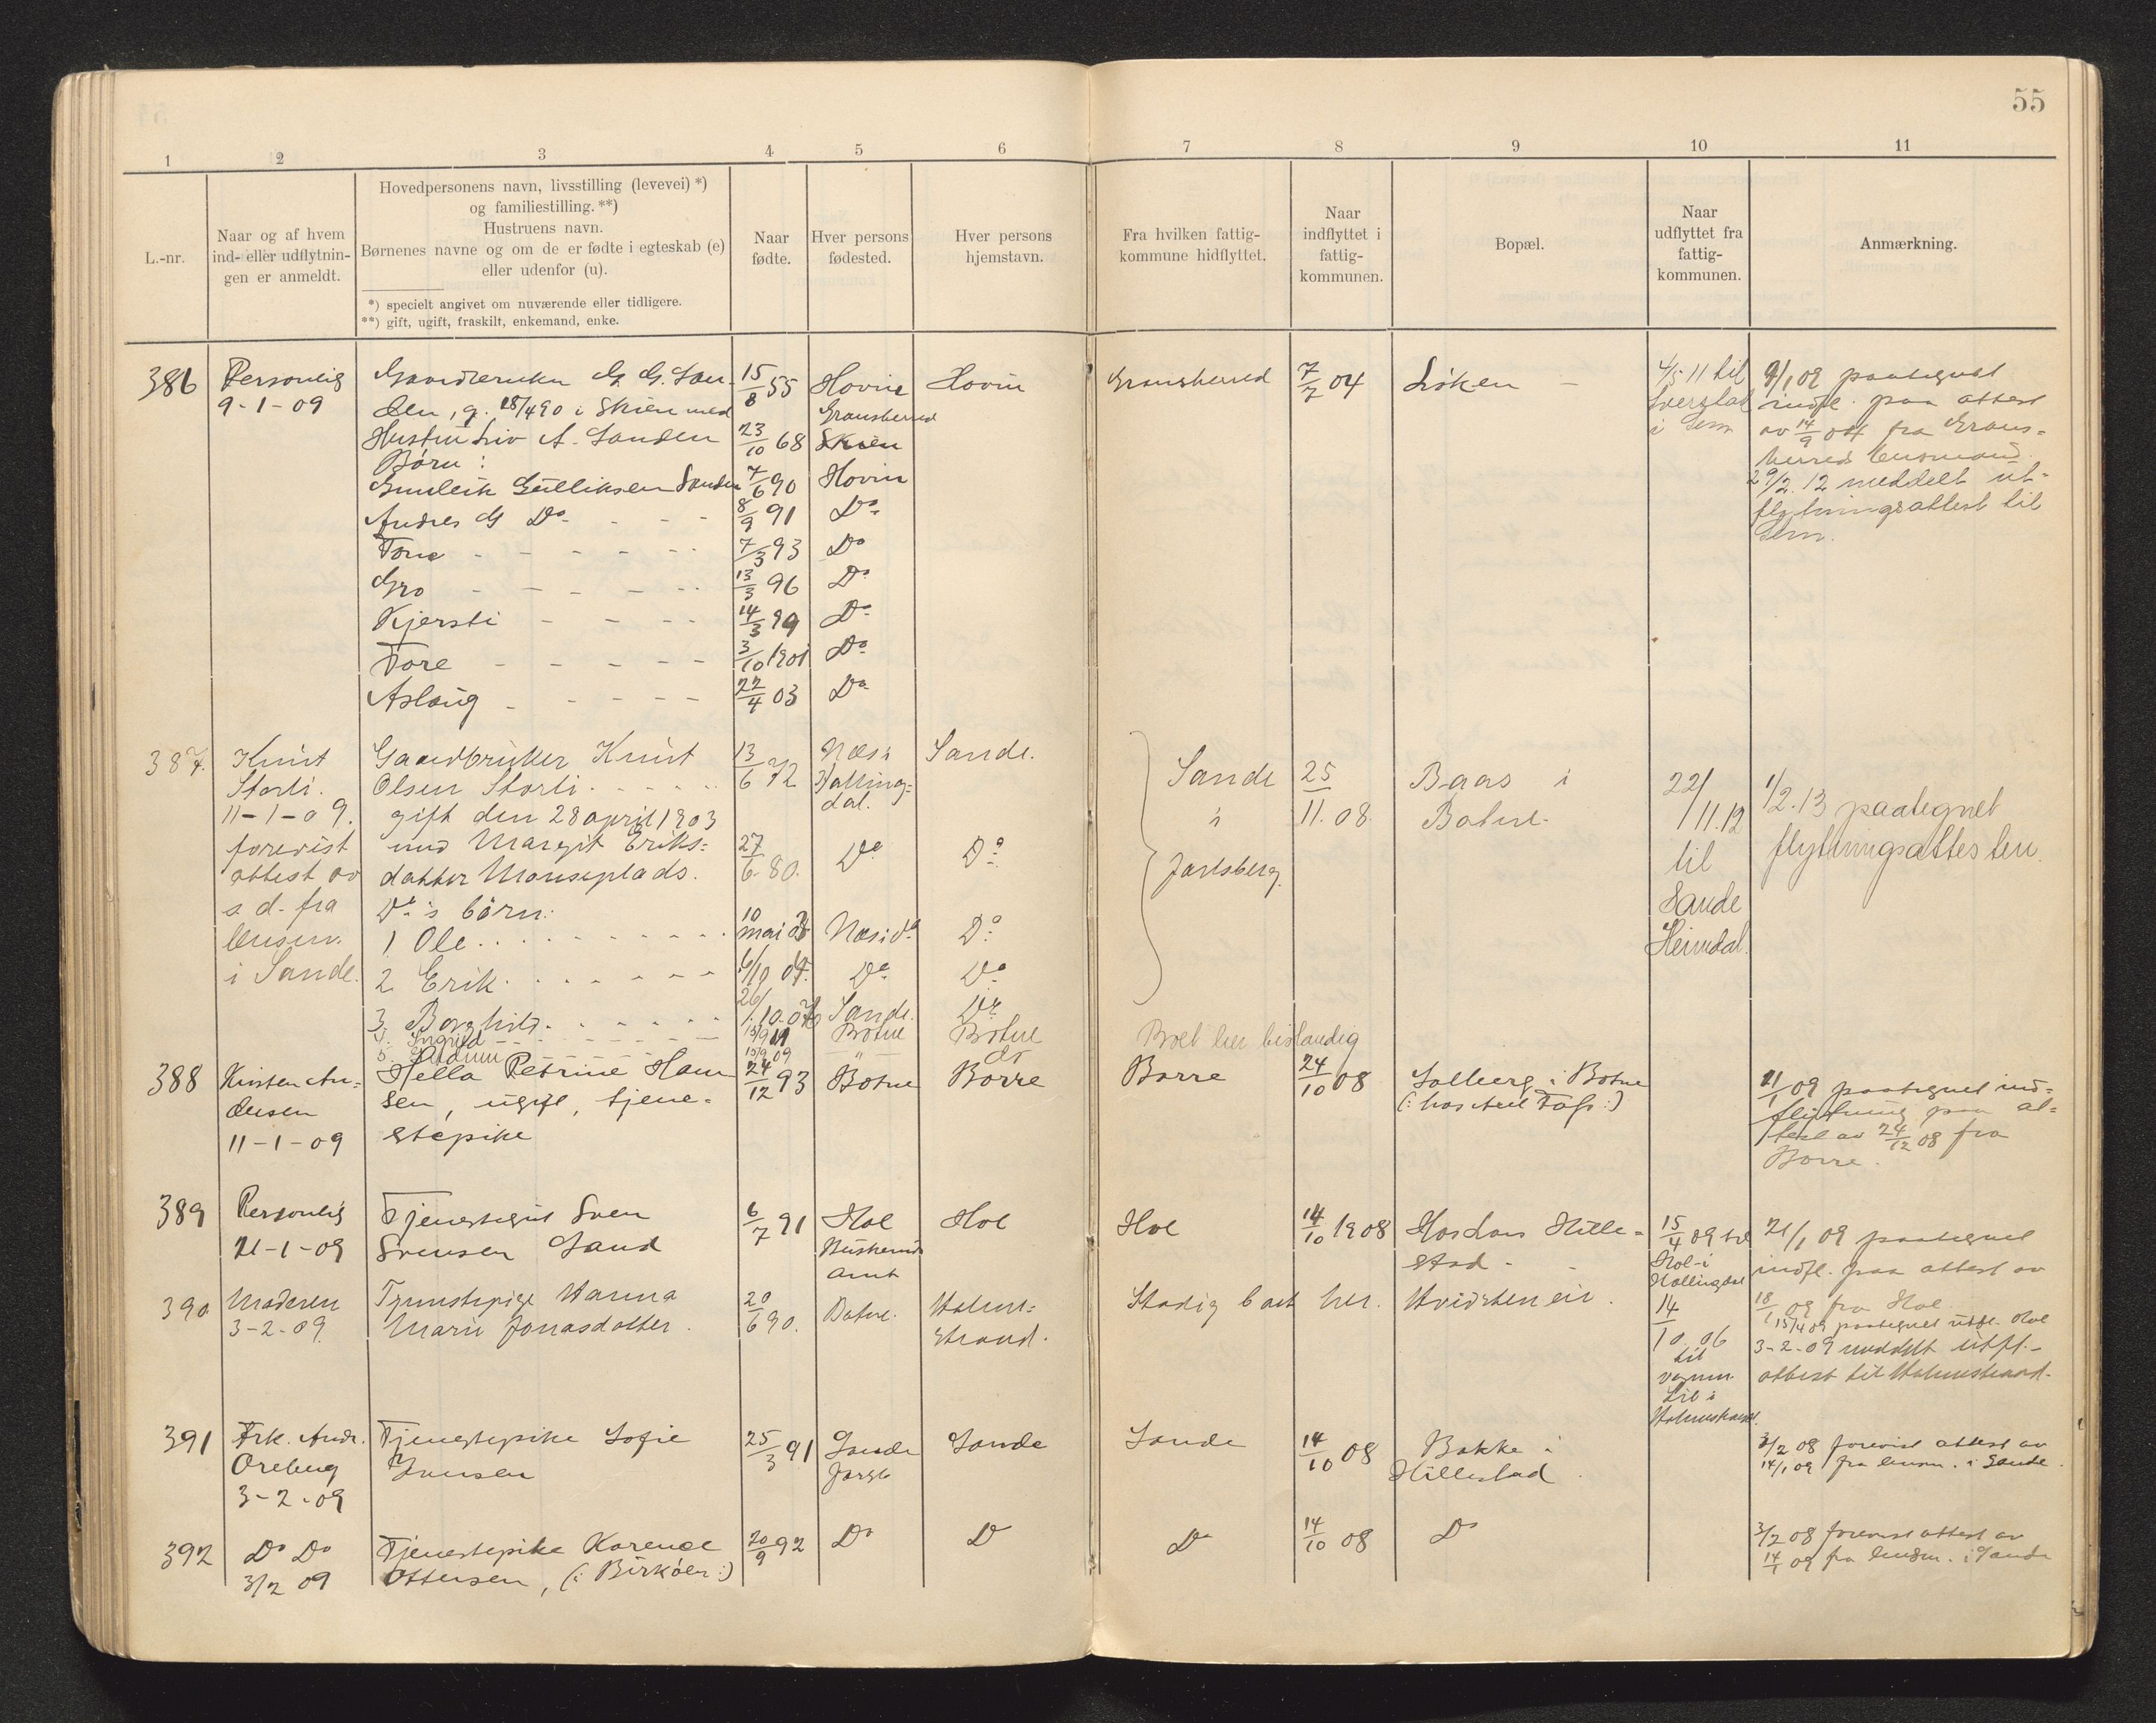 55
1 2 3 4 5 6 7 8 9 10 11
L.-nr.
Naar og af hvem
ind- eller udflytnin-
gen er anmeldt.
Hovedpersonens navn, livsstilling (levevei) *)
og familiestilling. **)
Hustruens navn.
Børnenes navne og om de er fødte i egteskab (e)
eller udenfor (u).
*) specielt angivet om nuværende eller tidligere.
**) gift, ugift, fraskilt, enkemand, enke.
Naar
fødte.
Hver persons
fødested.
Hver persons
hjemstavn.
Fra hvilken fattig-
kommune hidflyttet.
Naar
indflyttet i
fattig-
kommunen.
Bopæl.
Naar
udflyttet fra
fattig-
kommunen.
Anmærkning.
386
Personlig
9-1-09
Gaardbruker G. G. San-
den, g. 18/4 90 i Skien med
Hustru Liv A. Sanden
Børn:
Gunleik Gulliksen Sanden
Andres G Do - - -
Tone - - - - -
Gro - - - - -
Kjersti - - - -
Tore - - - - -
Aslaug - - - - -
15/8 55
23/10 68
7/6 90
8/9 91
7/3 93
13/3 96
14/3 99
3/10 1901
22/4 03
Hovin
Gransherred
Skien
Hovin
Do
Do
Do
Do
Do
Do
Hovin
Gransherred
7/7 04
Løken -
4/5 11 til
i Sem
9/1 09 paategnet
indfl. paa attest
av 14/9 04 fra Grans-
herreds lensmand.
29/2.12 meddelt ut-
flytningsattest til
Sem.
387.
Knut
Storli.
11-1-09.
forevist
attest av
s. d. fra
lensm.
i Sande.
Gaardbruker Knut
Olsen Storli. - - - -
gift den 28 april 1903
med Margit Eriks-
datter Monseplads.
Do's børn:
1 Ole. - - - -
2 Erik. - - - -
3. Borghild. - - - -
4. Ingrid - - - -
5.
13/6 72
27/6 80.
10
mai
6/10 04.
26/10-06
15/9 11
15/9 09
Næs i
Halling-
dal.
Do
Næs i do
Do
Sande.
Botne
"
Sande.
Do
Do
Do
Do
Botne
do
Sande
"
Jarlsberg.
Boet her bestandig
25/11.08.
Baas i
Botne.
22/11.12
til
Sande
Heimdal.
1/2.13 paategnet
flytningsattesten.
388
Kristen An-
dersen
11-1-09
Hella Petrine Han-
sen, ugift, tjene-
stepike
24/12 93
Botne
Borre
Borre
24/10 08
Solberg i Botne
(: hos :)
11/1 09 paategnet ind-
flytning paa at-
test av 24/12 08 fra
Borre.
389
Personlig
21-1-09
Tjenestegut Sven
Svensen Sand
6/7 91
Hol
Buskerud
amt
Hol
Hol
14/10 1908
Hos Lars Hille-
stad - -
15/4 09 til
Hol i
Hallingdal
21/1 09 paategnet
indfl. paa attest av
18/1 09 fra Hol.
15/4 09 paategnet utfl. Hol
390
Moderen
3-2-09
Tjenestepige Hanna
Marie Jonasdatter.
20/6 90.
Botne.
Holme-
strand.
Stadig boet her.
Hvidstein.
14/10.06
til
i
Holmestrand.
3-2-09 meddelt utfl.-
attest til Holmestrand.
391
Frk. Andr.
Oreberg
3-2-09
Tjenestepike Sofie
Jensen
25/3 91
Sande
Jarlsb
Sande
Sande
14/10 08
Bakke i
Hillestad.
3/2 08 forevist attest av
14/1 09 fra lensm. i Sande.
392
Do Do
3/2 09
Tjenestepike Karense
Ottersen, (: Birköen :)
20/9 92
Do
D
Do
14/10 08
Do
3/2 08 forevist attest av
14/1 09 fra lensm. i Sande